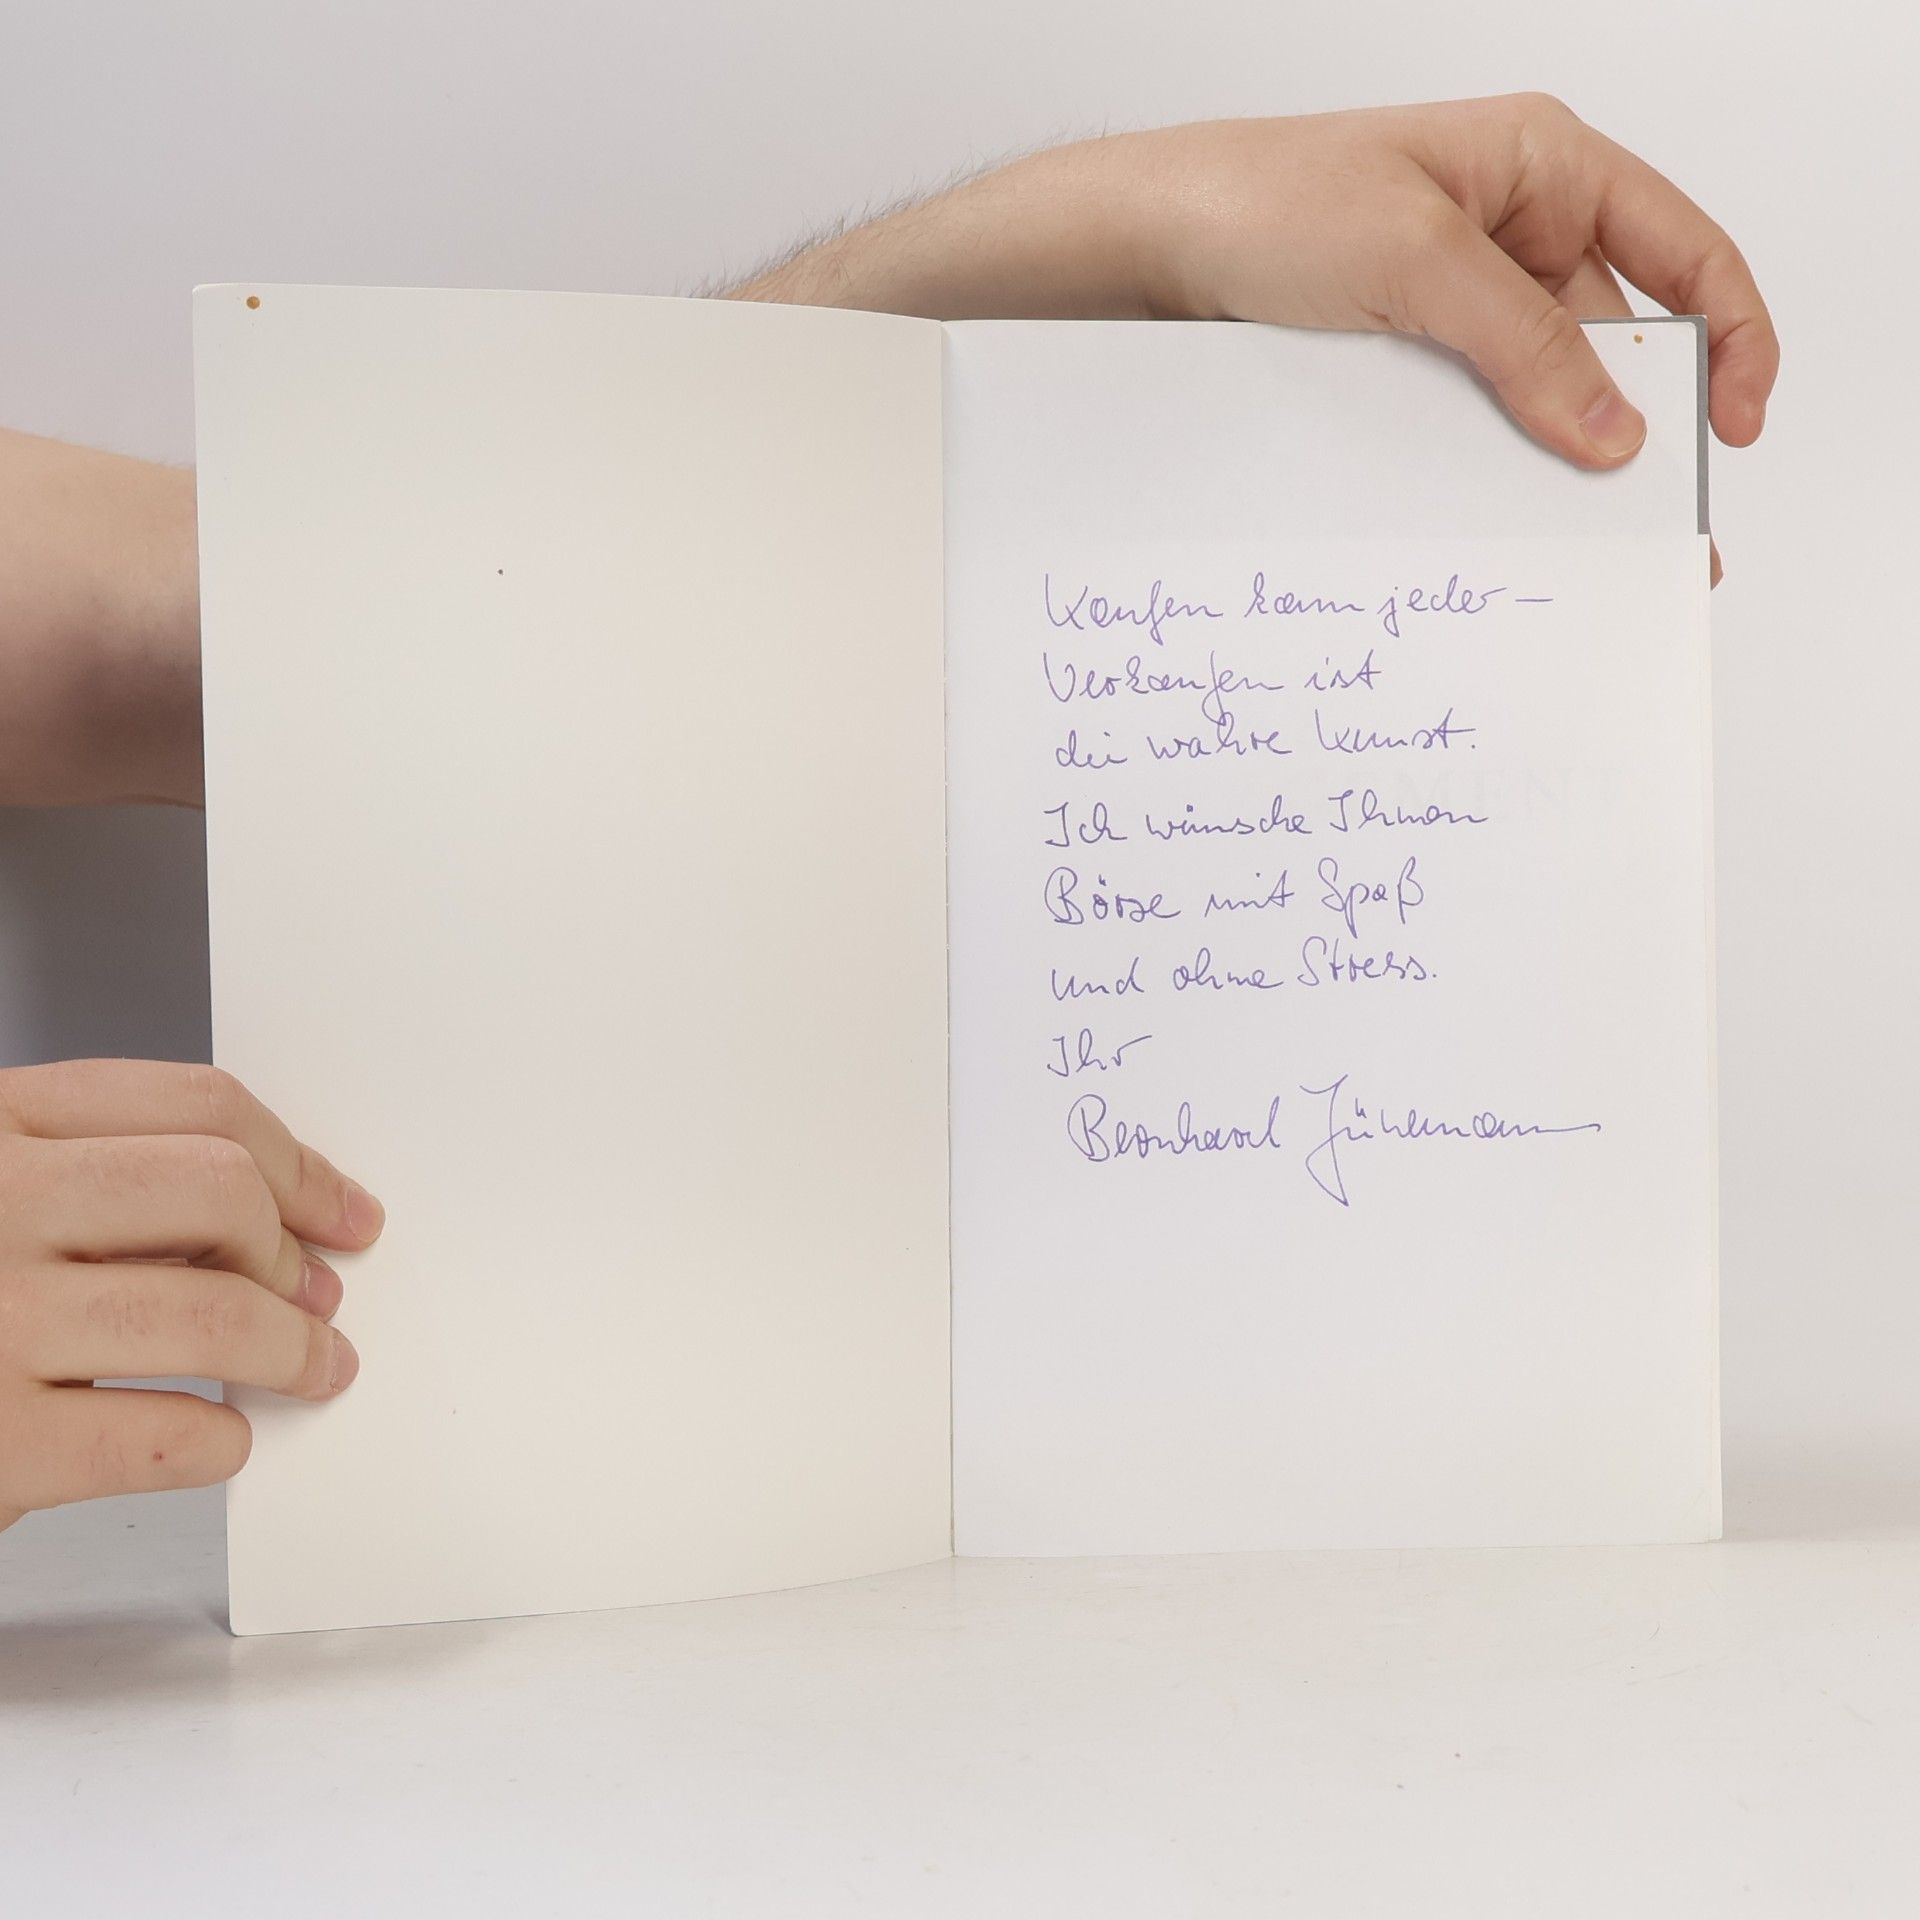 Kaufen kann jeder –
Verkaufen ist
die wahre Kunst.
Ich wünsche Ihnen
Börse mit Spaß
und ohne Stress.
Ihr
Bernhard Jünemann